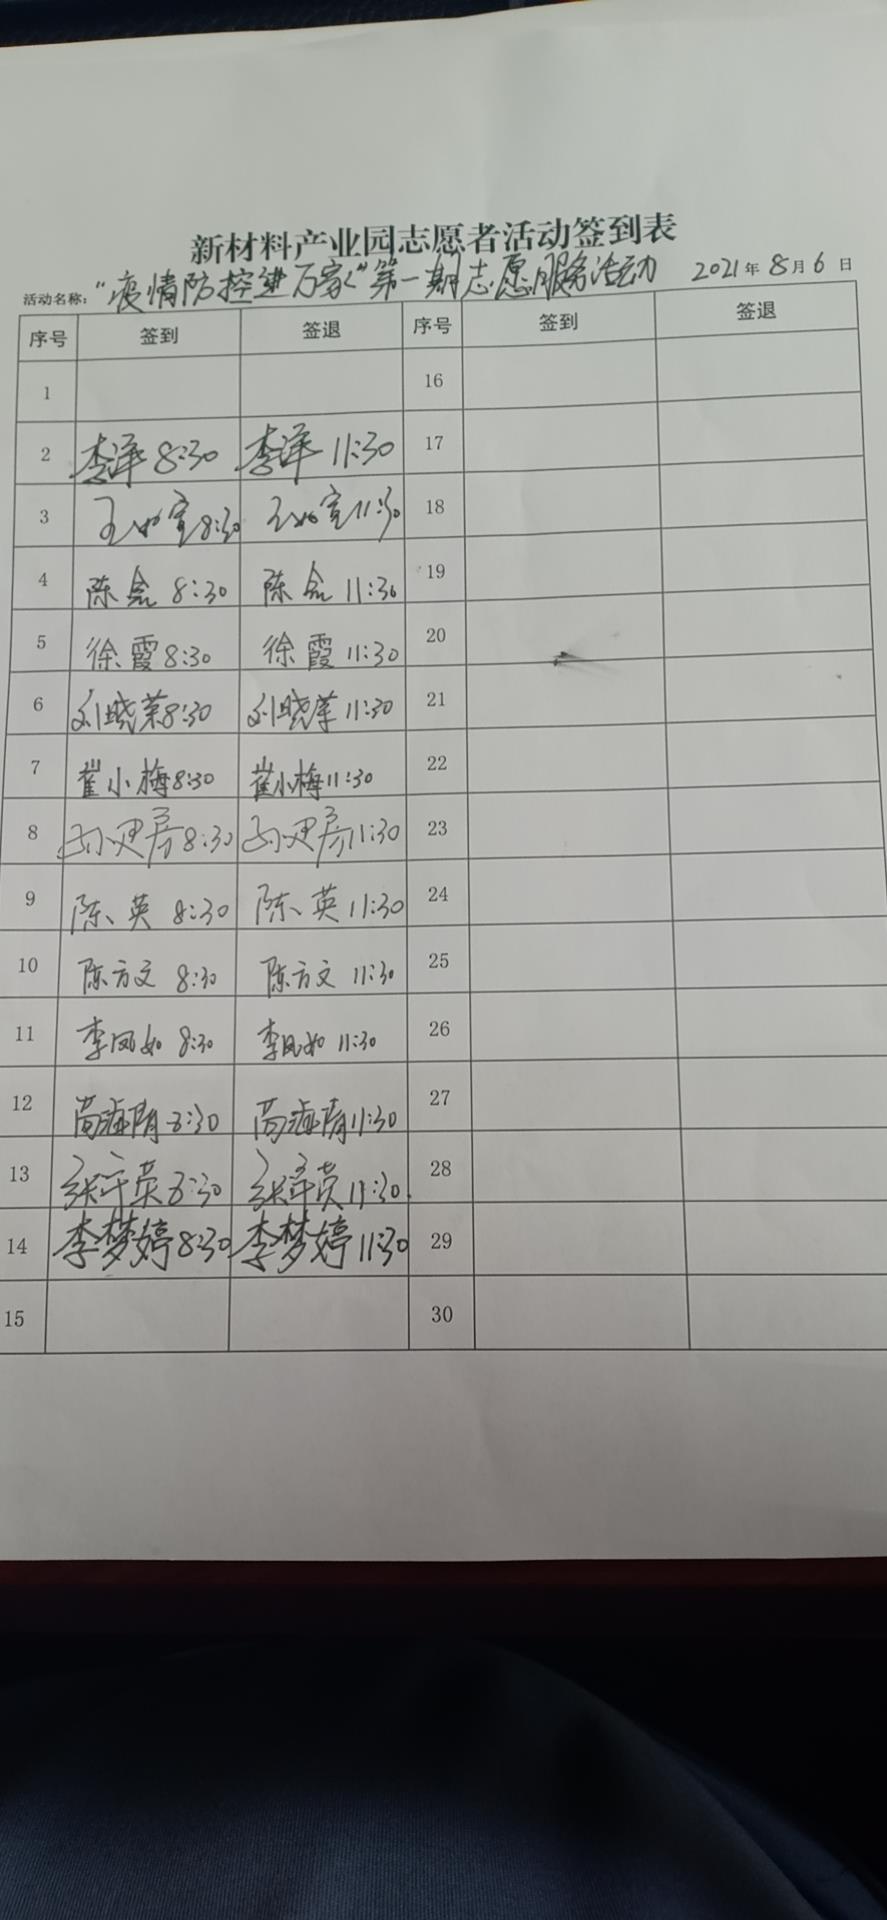 新材料产业园志愿者活动签到表
活动名称："疫情防控进万家"第一期志愿服务活动 2021年8月6日
序号 签到 签退 序号 签到 签退
1 16
2 李泽 8:30 李泽 11:30 17
3 王如宣 8:30 王如宣 11:30 18
4 陈 8:30 陈 11:30 19
5 徐霞 8:30 徐霞 11:30 20
6 刘晓荣 8:30 刘晓荣 11:30 21
7 崔小梅 8:30 崔小梅 11:30 22
8 8:30 11:30 23
9 陈英 8:30 陈英 11:30 24
10 陈方文 8:30 陈方文 11:30 25
11 李凤如 8:30 李凤如 11:30 26
12 8:30 11:30 27
13 张 英 8:30 张 英 11:30 28
14 李梦婷 8:30 李梦婷 11:30 29
15 30